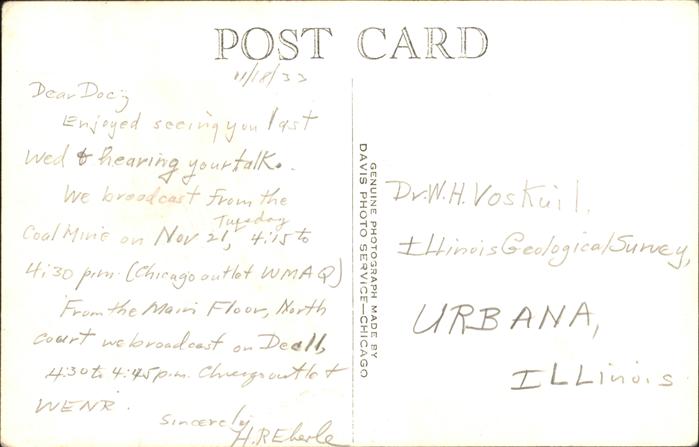 POST CARD
11/18/33
Dear Doc;
Enjoyed seeing you last
Wed & hearing your talk.
We broadcast from the
Tuesday
Coal Mine on Nov 21, 4:15 to
4:30 p.m. (Chicago outlet WMAQ)
From the Main Floor, North
court we broadcast on Dec 11,
4:30 to 4:45 p.m. Chicago outlet
WENR.
Sincerely
H.R Eberle
GENUINE PHOTOGRAPH MADE BY
DAVIS PHOTO SERVICE—CHICAGO
Dr. W. H. Voskuil,
Illinois Geological Survey,
URBANA,
ILLinois